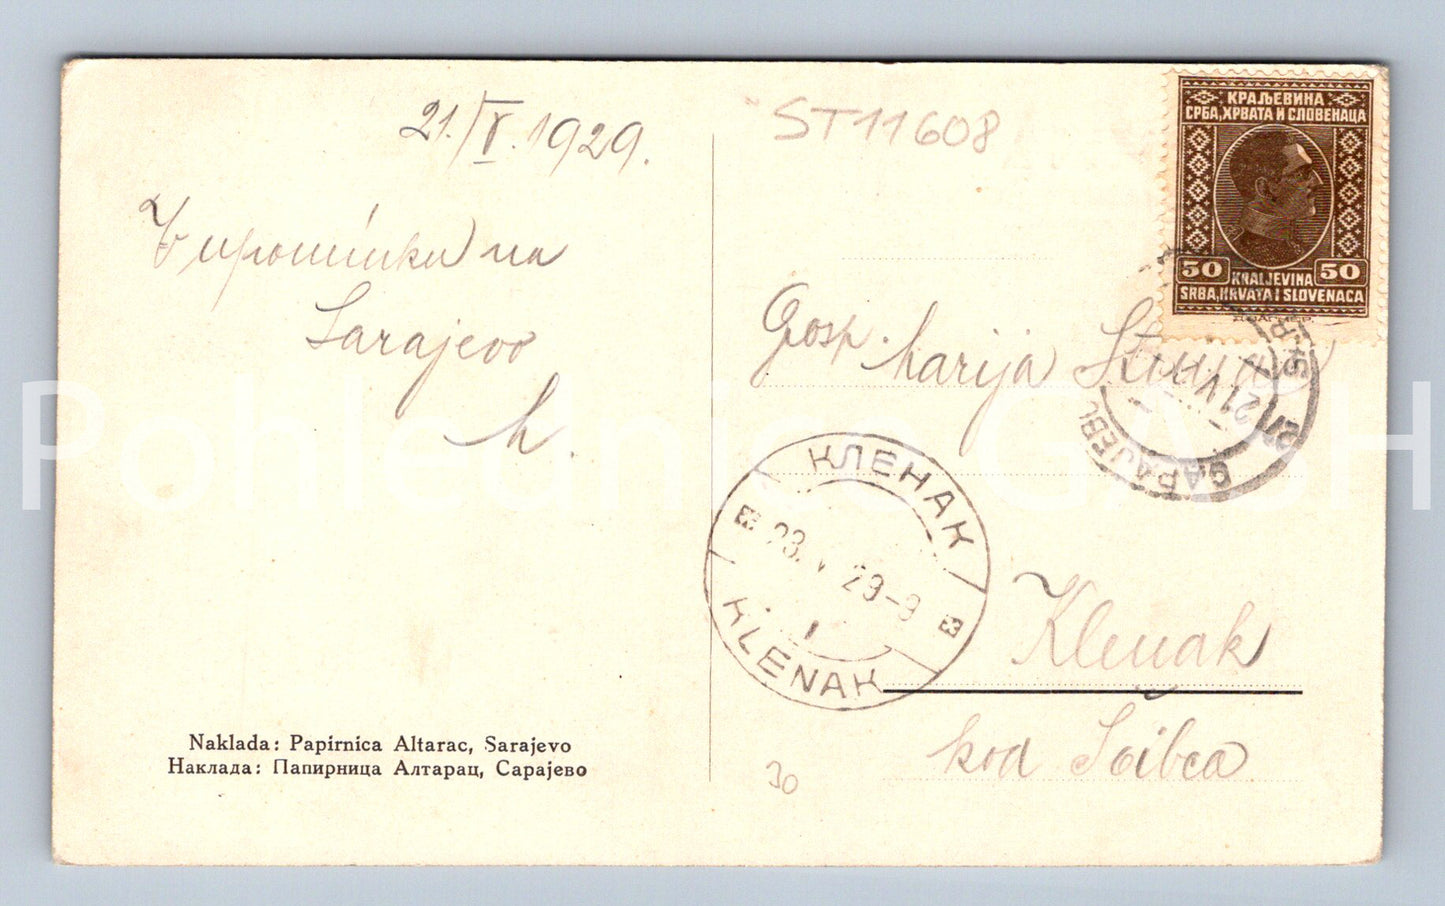 21./V. 1929.
V upomínku na
Sarajevo
M.
Naklada: Papirnica Altarac, Sarajevo
Наклада: Папирница Алтарац, Сарајево
ST11608
КРАЉЕВИНА
СРБА, ХРВАТА И СЛОВЕНАЦА
50 KRALJEVINA 50
SRBA, HRVATA I SLOVENACA
Gosp. Marija
САРАЈЕВО
21 V
КЛЕНАК
23. V 29-9
KLENAK
Klenak
kod
30
Pohlednice GASH